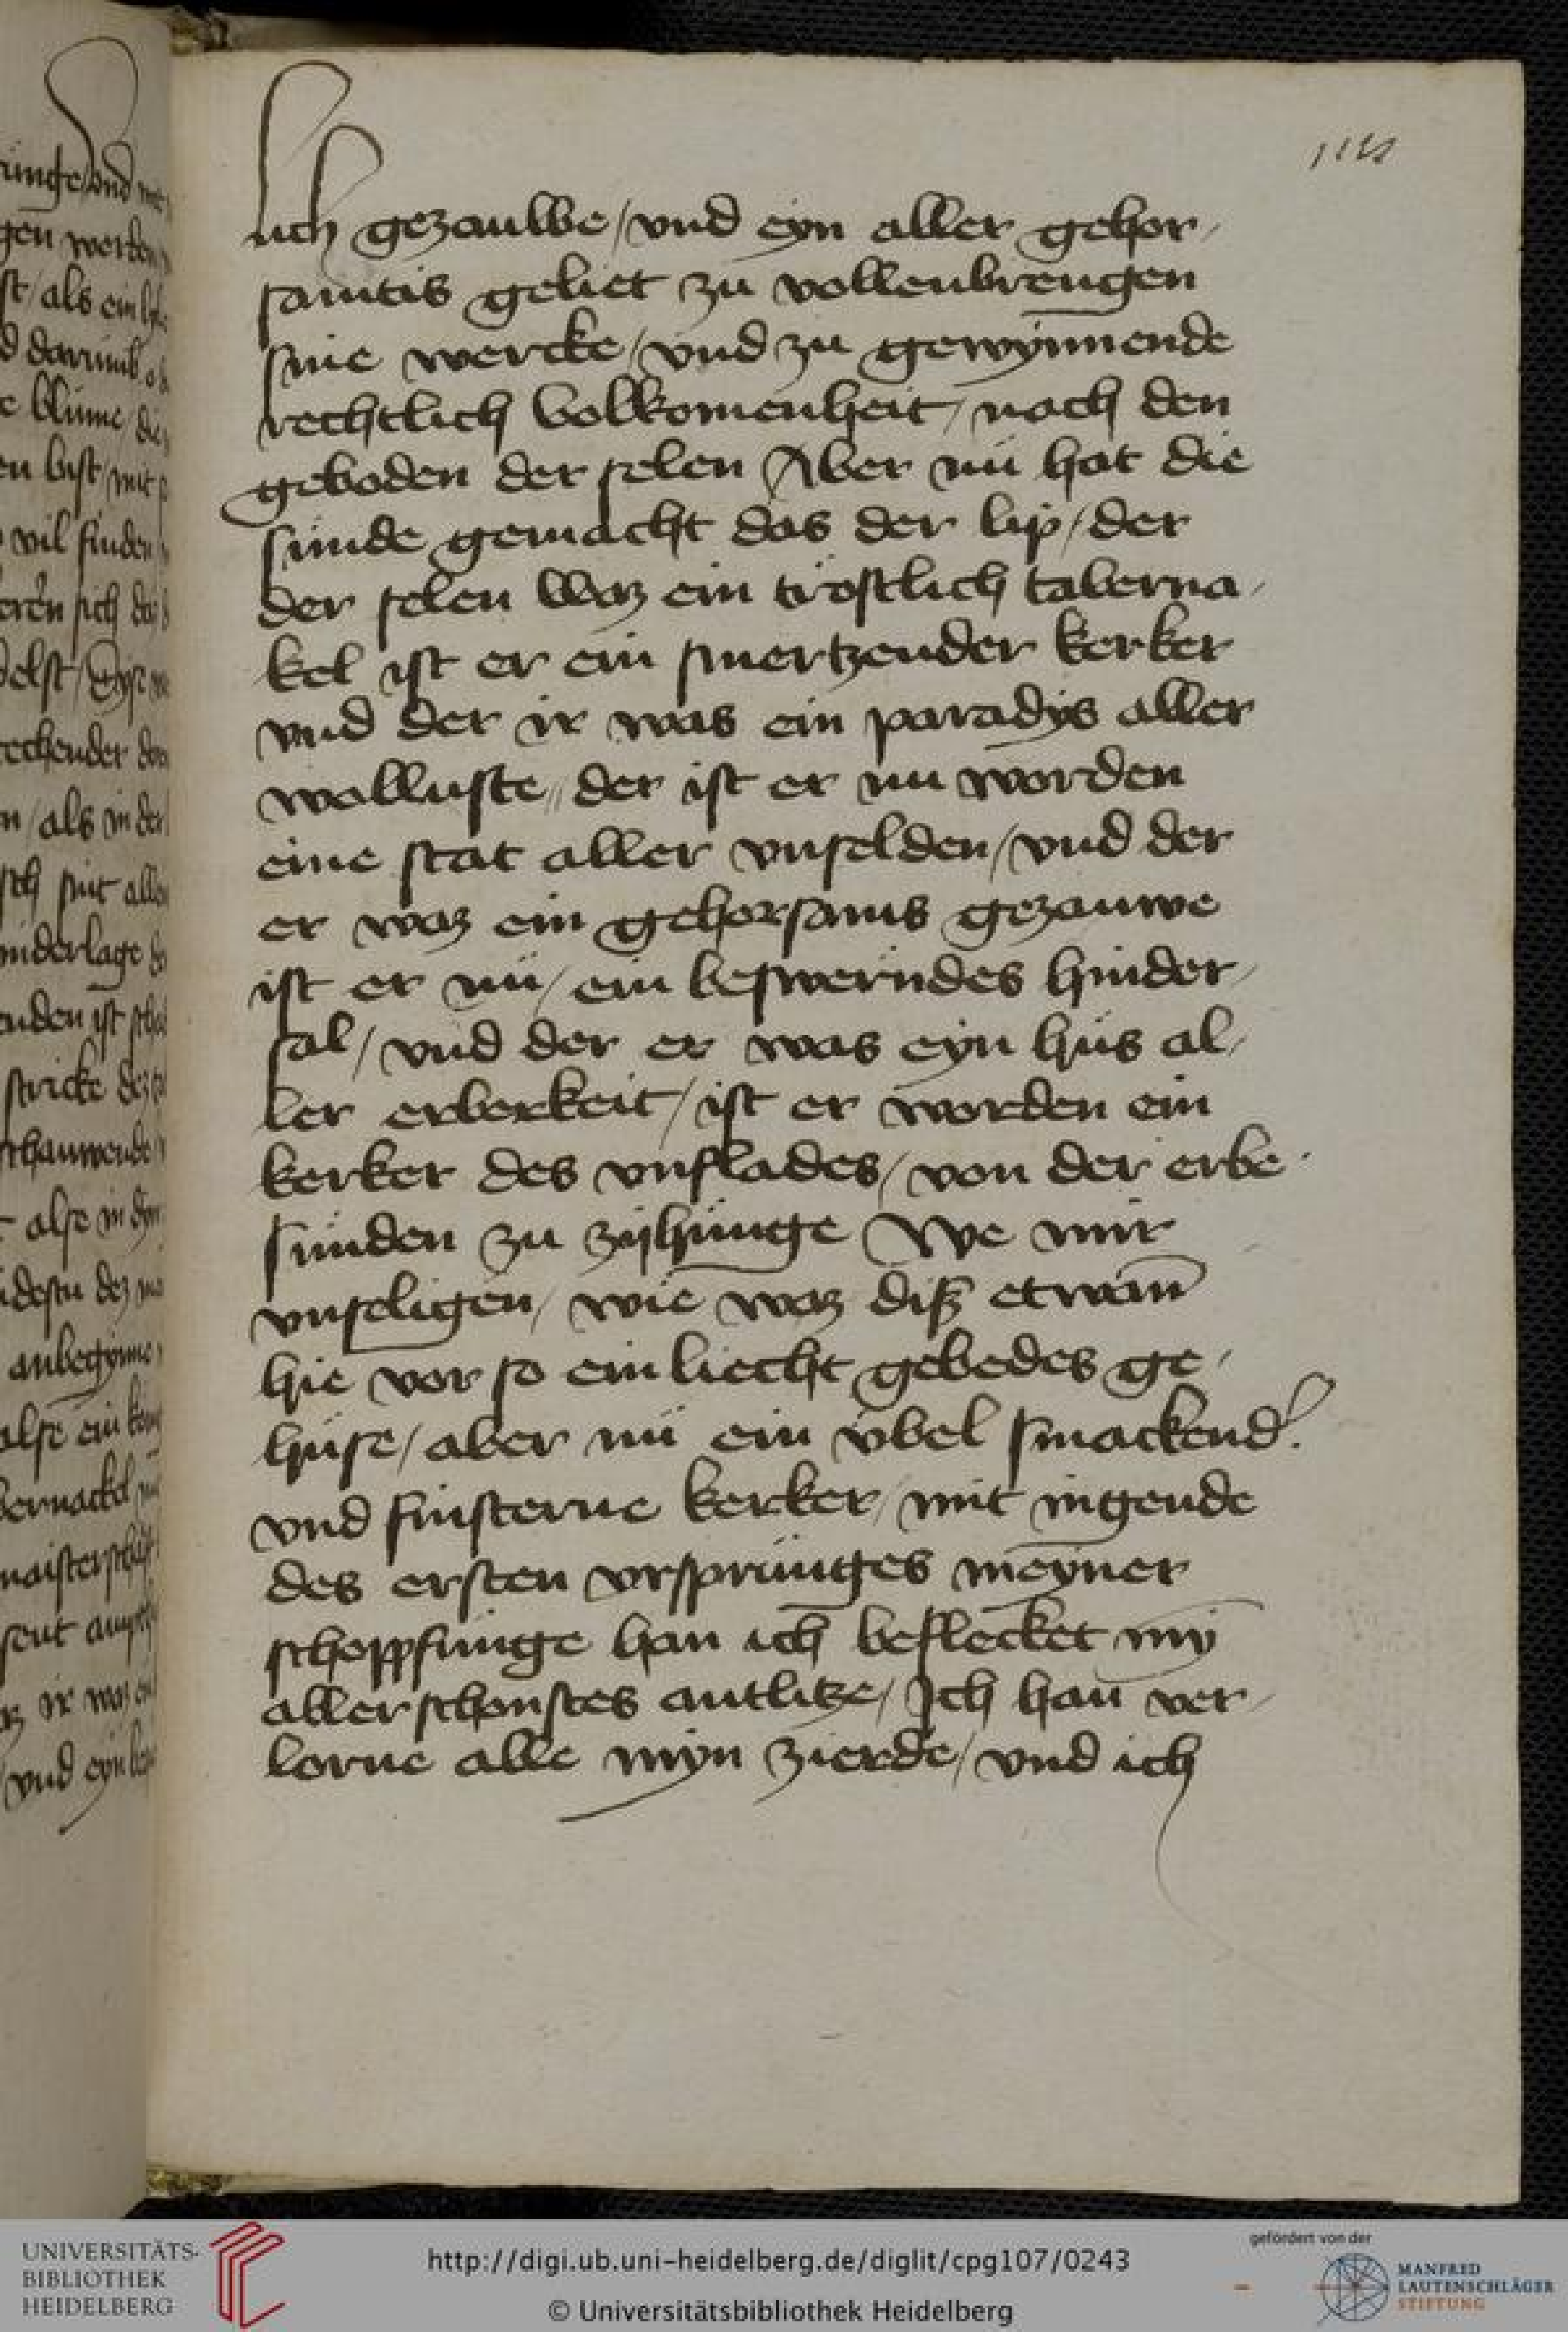 lich gezauwe / vnd eyn aller gehor /
samtis geliet zu vollenbrengen
sine wercke / vnd zu gewynnende
rechtlich volkomenheit / nach den
geboden der selen Aber nü hat die
sünde gemacht das der lip / der
der selen waz ein trostlich taberna /
kel ist er ein smertzender kerker
vnd der ir was ein paradÿs aller
wolluste // der ist er nu worden
eine stat aller vnselden / vnd der
er waz ein gehorsams gezauwe
ist er nü / ein beswerndes hinder /
sal / vnd der er was eyn hüs al /
ler erberkeit / ist er worden ein
kerker des vnflades / von der erbe
sünden zu zijhunge We mir
vnseligen / wie waz diß etwan̄
hie vor so ein liecht gebedes ge /
hüse / aber nü ein vbel smackend'
vnd finsterne kerker / mit ingende
des ersten vrsprunges meyner
schoppfunge han ich beflecket my̅
allerschonstes antlitze / Ich han̄ ver /
lorne alle myn zierde / vnd ich
UNIVERSITÄTS-
BIBLIOTHEK
HEIDELBERG
http://digi.ub.uni-heidelberg.de/diglit/cpg107/0243
© Universitätsbibliothek Heidelberg
gefördert von der
MANFRED
LAUTENSCHLÄGER
STIFTUNG